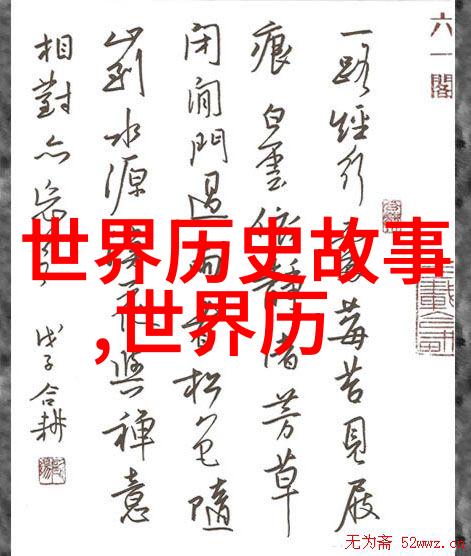 六一閣
一路經行處莓苔見屐
痕白雲依靜渚芳草
閉閒門過雨看松色隨
山到水源溪花與禪意
相對亦忘言
戊子合耕
世界历史故事
,世界历
无为斋 52wwz.c